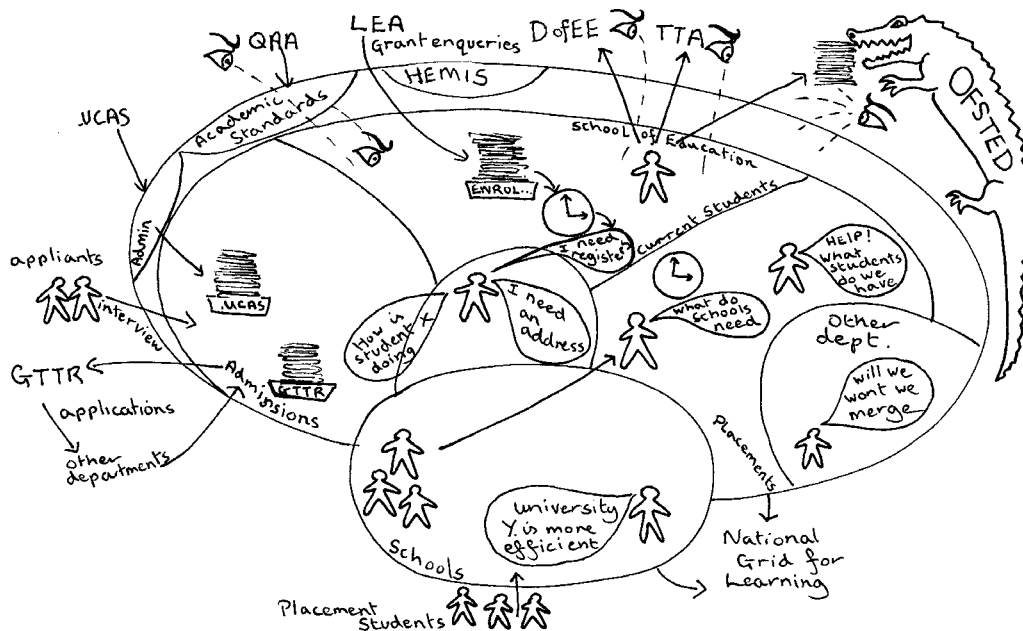 QAA
LEA
Grant enqueries
DofEE
TTA
OFSTED
HEMIS
Academic
Standards
.UCAS
School of Education
ENROL...
Current Students
Admin
I need
register
appliants
interview
.UCAS
HELP!
What
students
do we
have
How is
student X
doing
I need
an
address
what do
schools
need
Other
dept.
will we
wont we
merge
GTTR
GTTR
Admissions
applications
other
departments
Placements
university
Y is more
efficient
Schools
National
Grid for
Learning
Placement
Students